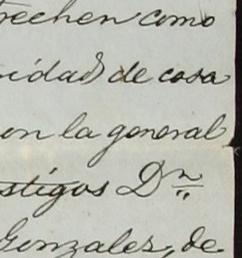 rechen como
cidad de cosa
en la general
stigos Dn
Gonzales, de